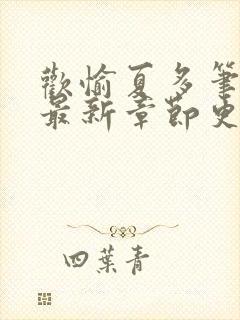 歡愉夏多筆
最新章節史
四葉青